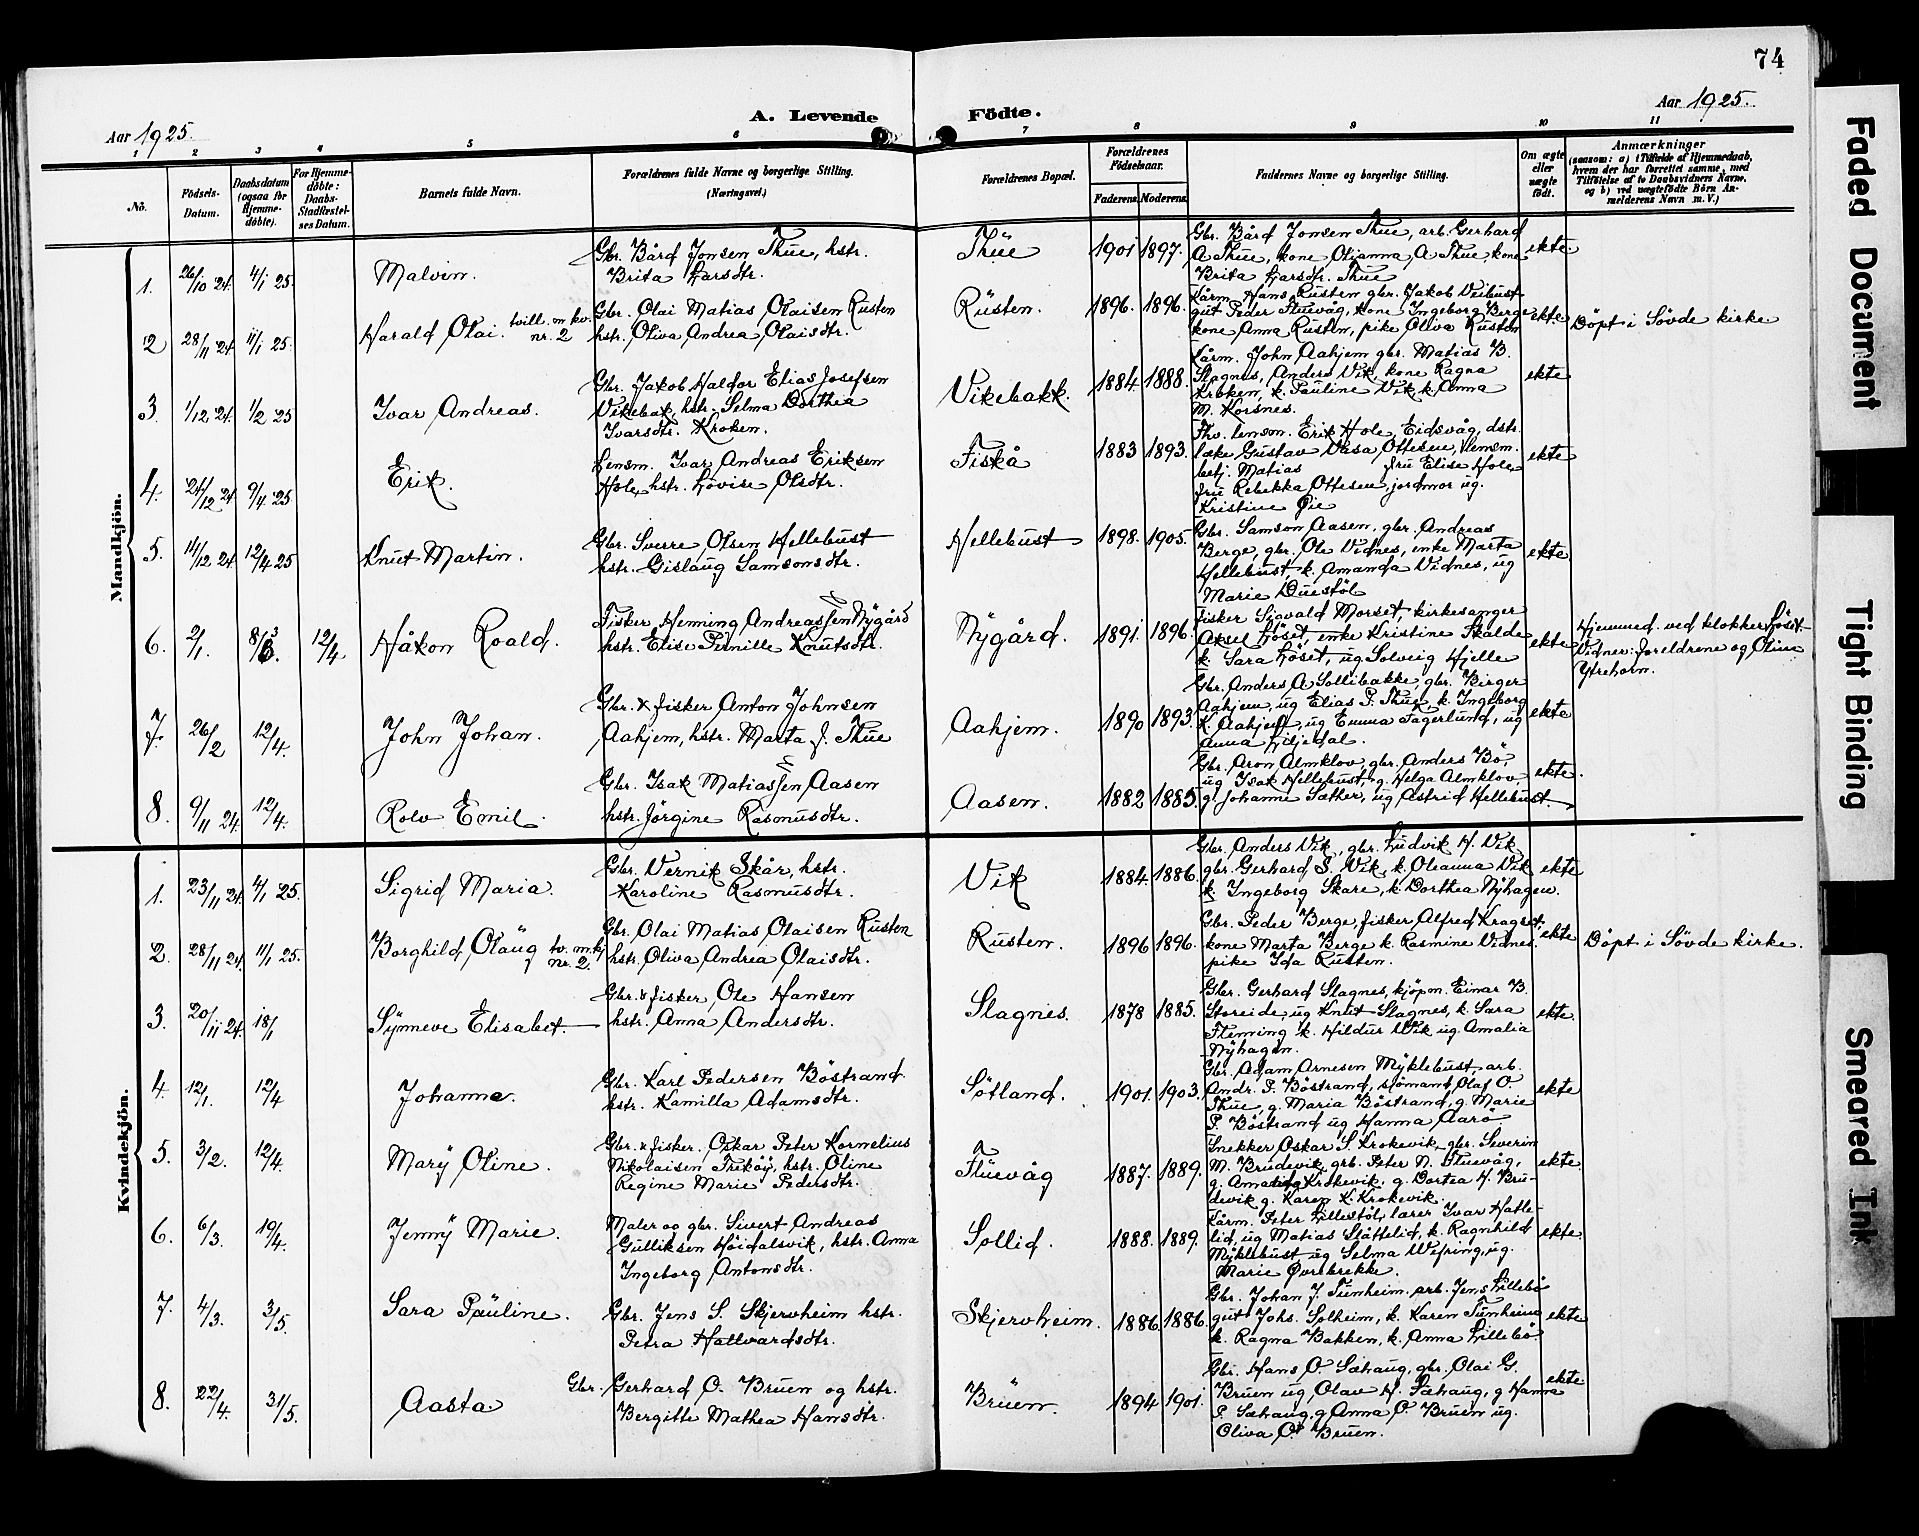 74
Aar 1925.
A. Levende
Födte.
Aar 1925.
1 2 3 4 5 6 7 8 9 10 11
No.
Födsels-
Datum.
Daabsdatum
(ogsaa for
Hjemme-
döbte).
For Hjemme-
döbte:
Daabs-
Stadfæstel-
ses Datum.
Barnets fulde Navn.
Forældrenes fulde Navne og borgerlige Stilling.
(Næringsvei.)
Forældrenes Bopæl.
Forældrenes
Födselsaar.
Faderens. Moderens.
Faddernes Navne og borgerlige Stilling.
Om ægte
eller
uægte
födt.
Anmærkninger
(saasom: a) i Tilfælde af Hjemmedaab,
hvem der har forrettet samme, med
Tilföielse af to Daabsvidners Navne,
og b) ved uægtefödte Börn An-
melderens Navn m. V.)
Mandkjön.
1. 26/10 24. 4/1 25 Malvin.
Gbr. Bård Jonsen Thue, hstr.
Brita Larsdtr.
Thue 1901 1897.
Gbr. Bård Jonsen Thue, arb. Gerhard
A Thue, kone Olianna A Thue, kone
Brita Larsdtr. Thue
ekte
2 28/11 24 11/1 25. Harald Olai. tvill. m kv.
nr. 2
Gbr. Olai Matias Olaisen Rusten
hstr. Oliva Andrea Olaisdtr.
Rusten. 1896. 1896.
Kårm. Hans Rusten gbr. Jakob Veibust
gut Peder Stuevåg, kone Ingeborg Berge
kone Anna Rusten, pike Oliva Rusten
ekte Döpt i Sövde kirke
3 1/12 24. 1/2 25 Ivar Andreas.
Gbr. Jakob Haldor Elias Josefsen
Vikebak, hstr. Selma Dorthea
Ivarsdtr. Kroken.
Vikebakk. 1884 1888.
Kårm. John Aahjem gbr. Matias B.
Slagnes, Anders Vik, kone Ragna
Kroken, k. Pauline Vik k. Anna
M. Korsnes.
ekte
4. 24/12 24 9/4 25 Erik.
Lensm. Ivar Andreas Eriksen
Hole, hstr. Lovise Olsdtr.
Fiskå 1883 1893.
Fhv. lensm. Erik Hole, Eidsvåg, dstr.
læke Gustav Vasa Ottesen, lensm.
betj. Matias fru Elise Hole
fru Rebekka Ottesen, jordmor ug.
Kristine Øie
ekte
5. 14/12 24. 12/4 25 Knut Martin.
Gbr. Sverre Olsen Hellebust
hstr. Gislaug Samsonsdtr.
Hellebust 1898. 1905.
Gbr. Samson Aasen, gbr. Andreas
Berge, gbr. Ole Vidnes, enke Marta
Hellebust, k. Amanda Vidnes, ug
Marie Duestöl
ekte
6. 2/1. 8/3. 12/4 Håkon Roald.
Fisker Henning Andreassen Nygård
hstr. Elise Pernille Knutsdtr.
Nygård. 1891. 1896.
Fisker Sigvald Morset, kirkesanger
Aksel Löset, enke Kristine Skalde
k. Sara Löset, ug Solveig Hjelle
ekte
Hjemmed. ved klokker Löset.
Vidner: foreldrene og Oline
Ytrehorn.
7. 26/2 12/4. John Johan.
Gbr. & fisker Anton Johnsen
Aahjem, hstr. Marta J. Thue
Aahjem. 1890 1893.
Gbr. Anders A Sollibakke, gbr. Birger
Aahjem, ug Elias P. Thue, k. Ingeborg
K. Aahjem, ug Emma Fagerlund, ug
Anna
ekte
8. 9/11 24. 12/4. Rolv Emil.
Gbr. Isak Matiassen Aasen
hstr. Jörgine Rasmusdtr.
Aasen. 1882 1885.
Gbr. Aron Almklov, gbr. Anders Bö,
ug Isak Hellebust, g. Helga Almklov
g. Johanne Sæther, ug Astrid Hellebust.
ekte.
Kvindekjön.
1. 23/11 24. 4/1 25. Sigrid Maria.
Gbr. Vernik Skår, hstr.
Karoline Rasmusdtr.
Vik 1884. 1886.
Gbr. Anders Vik, gbr. Ludvik H. Vik
gbr. Gerhard S. Vik, k. Olianna Vik
k. Ingeborg Skare, k. Dorthea Nyhagen.
ekte
2. 28/11 24. 11/1 25. Borghild Olaug tv. m. kj
nr. 2.
Gbr. Olai Matias Olaisen Rusten
hstr. Oliva Andrea Olaisdtr.
Rusten. 1896 1896.
Gbr. Peder Berge, fisker Alfred Kragset
kone Marta Berge k. Rasmine Vidnes.
pike Ida Rusten.
ekte Döpt i Sövde kirke.
3. 20/11 24. 18/1 Synneve Elisabet.
Gbr. & fisker Ole Hansen
hstr. Anna Andersdtr.
Slagnes. 1878 1885.
Gbr. Gerhard Slagnes, kjöpm. Einar B.
Storeide, ug Knut Slagnes, k. Sara
Fleming k. Hildur Wik ug. Amalia
Nyhagen.
ekte.
4. 12/1. 12/4 Johanne.
Gbr. Karl Pedersen Böstrand.
hstr. Kamilla Adamsdtr.
Sötland. 1901. 1903.
Gbr. Adam Arnesen Myklebust, arb.
Andr. P. Böstrand, sjömann Olaf O
Thue, g. Maria Böstrand, g. Marie
P. Böstrand ug Hanna Aarö
ekte
5. 3/2. 12/4. Mary Oline.
Gbr. & fisker. Oskar Peter Kornelius
Nikolaisen Frikøy, hstr. Oline
Regine Marie Pedersdtr.
Thuevåg 1887. 1889.
Snekker Oskar S. Krokevik, gbr. Severin
M. Brudevik, grb. Peter N. Stuevåg,
g. Krokevik, g. Dortea H. Bru-
devik g. Karen K. Krokevik.
ekte.
6. 6/3. 19/4. Jenny Marie.
Maler og gbr. Sivert Andreas
Gulliksen Höidalsvik, hstr. Anna
Ingeborg Antonsdtr.
Sollid. 1888. 1889.
Kårm. Peter Lillestöl, lærer Ivar Hatle-
lid, ug Matias Slåttelid, k. Ragnhild
Myklebust ug Selma Wefring, ug.
Marie Øvrebekke.
ekte.
7. 4/3. 3/5. Sara Pauline.
Gbr. Jens S. Skjervheim hstr.
Petra Hallvardsdtr.
Skjervheim. 1886. 1886.
Gbr. Johan J. Tunheim. arb. Jens Lillebö
gut Johs. Solheim, k. Karen Tunheim
k. Ragna Bakken, k. Anna Lillebö.
ekte
8. 22/4. 31/5. Aasta
Gbr. Gerhard O. Bruen og hstr.
Bergitte Mathea Hansdtr.
Bruen. 1894 1901.
Gbr. Hans O Sæhaug, gbr. Olai G.
Bruen ug, Olav H. Sæhaug, g Hanna
P. Sæhaug, g Anna O. Bruen ug.
Oliva O. Bruen.
ekte
Faded Document
Tight Binding
Smeared Ink